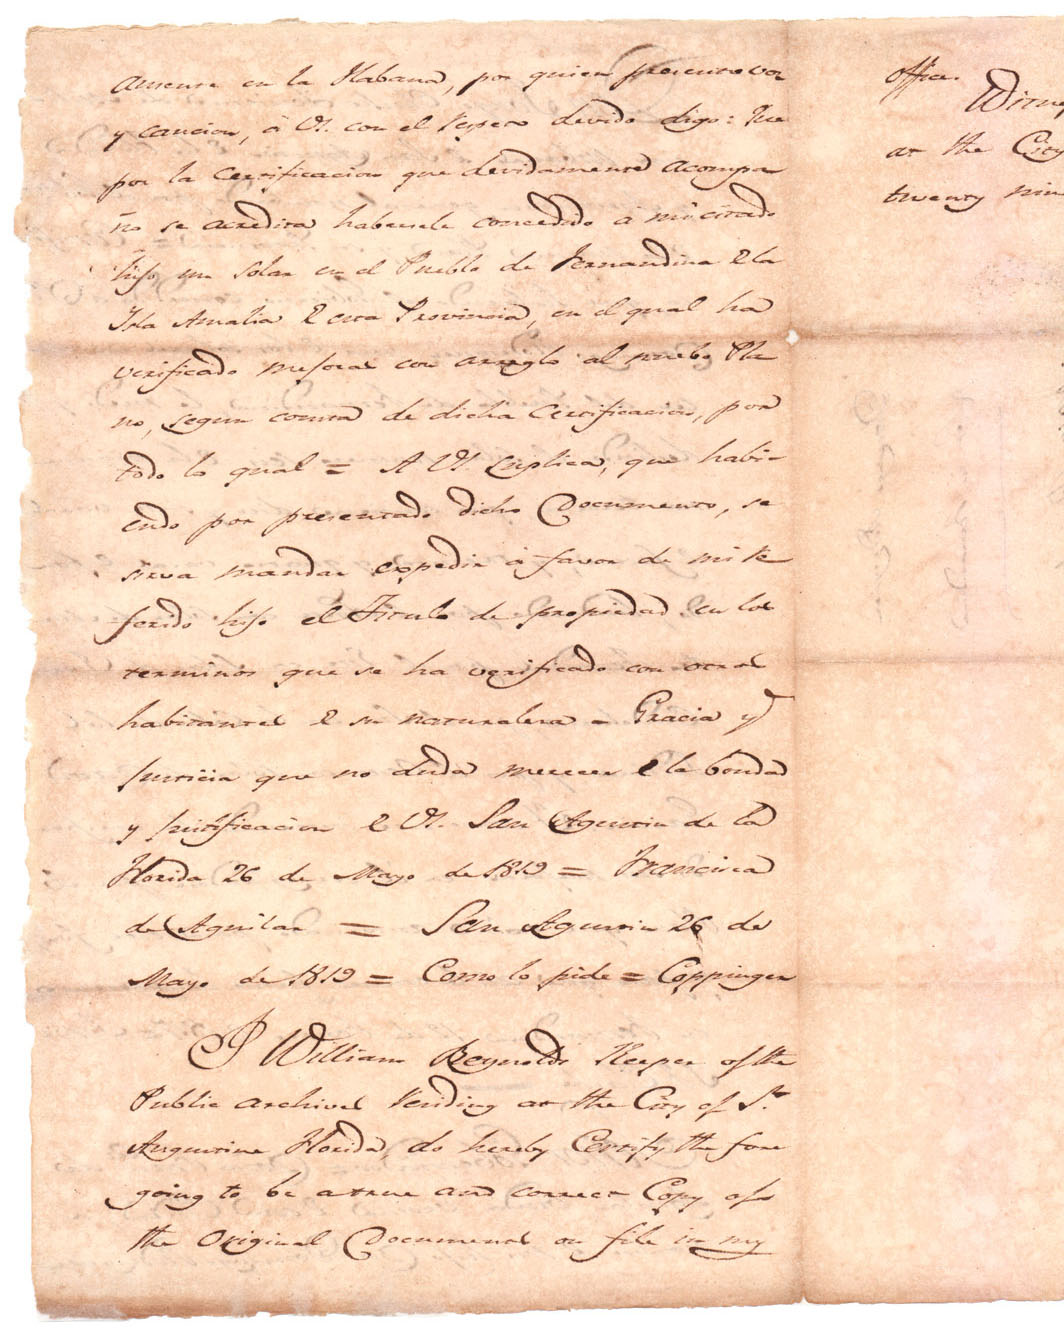 Ausente en la Habana, por quien presento voz
y caucion, á VS. con el respeto devido digo: Que
por la Certificacion que devidamente acompa
ño se acredita habersele concedido á mi citado
hijo un Solar en el Pueblo de Fernandina de la
Isla Amalia de esta Provincia, en el qual ha
verificado mejoras con arreglo al nuebo Pla
no, segun consta de dicha Certificacion, por
todo lo qual = A VS. suplica, que habi-
endo por presentado dicho Documento, se
sirva mandar expedir á favor de mi re
ferido hijo el Titulo de propiedad en los
terminos que se ha verificado con otros
habitantes de su naturalesa = Gracia y
Justicia que no duda merecer de la bondad
y justificacion de VS. San Agustin de la
Florida 26 de Mayo de 1819 = Francisca
de Aguilar = San Agustin 26 de
Mayo de 1819 = Como lo pide = Coppinger
I William Reynolds Keeper of the
Public archives Residing at the City of St.
Augustine Florida, do hereby Certify the fore
going to be a true and correct Copy of
the Original Documents on file in my
office.
Witnes
at the City
twenty nin